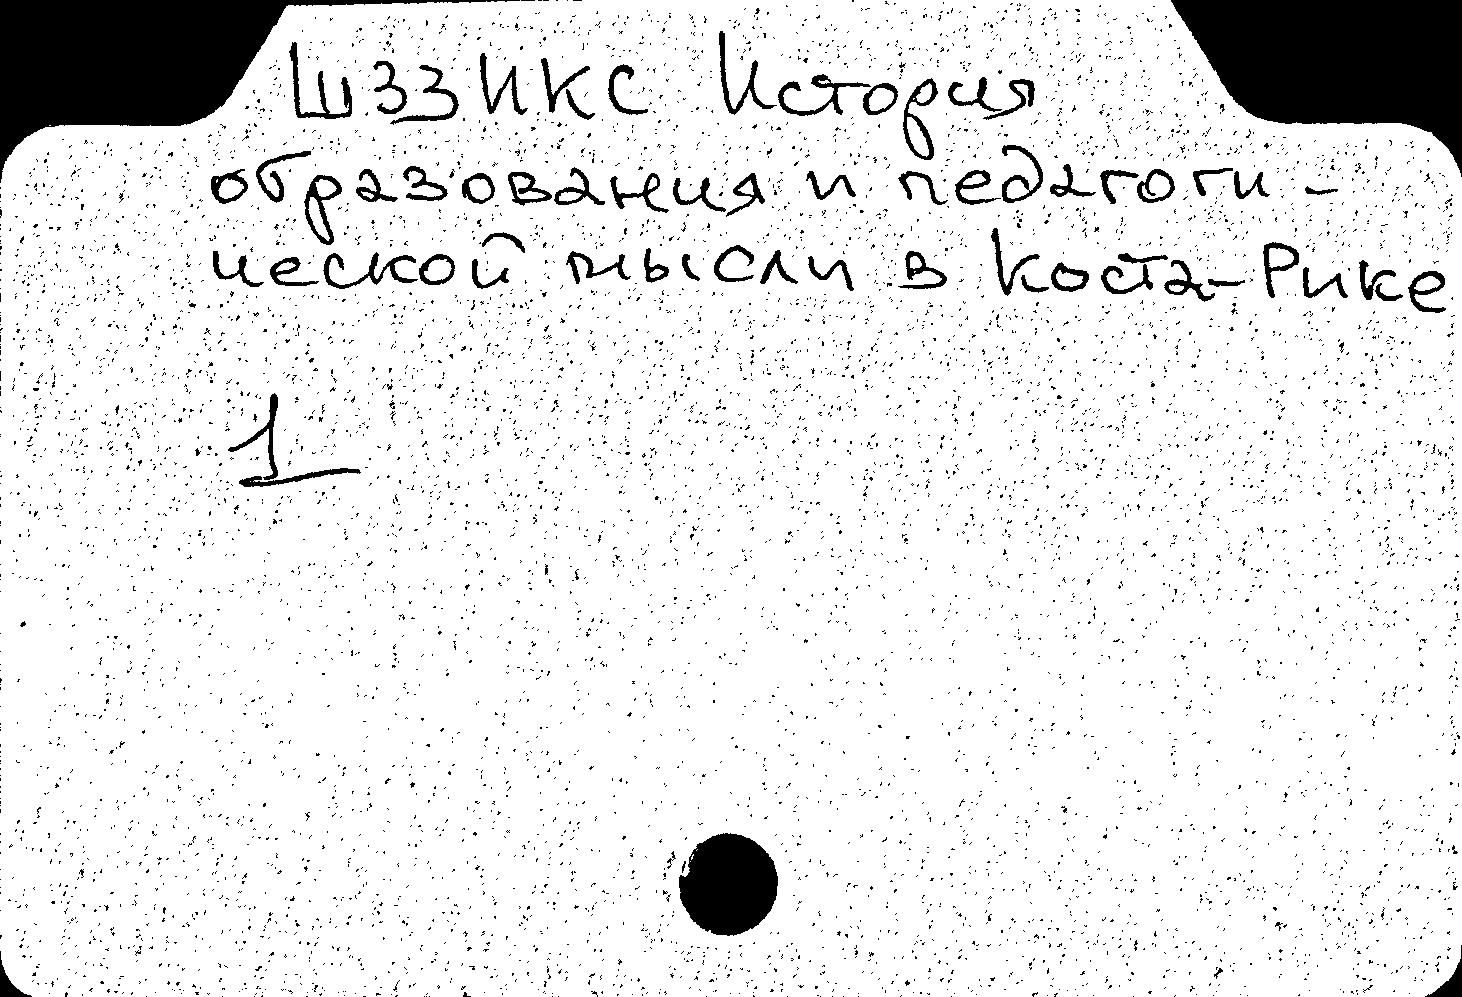 Ш33ИКС История
образования и педагоги-
ческой мысли в Коста-Рике
1